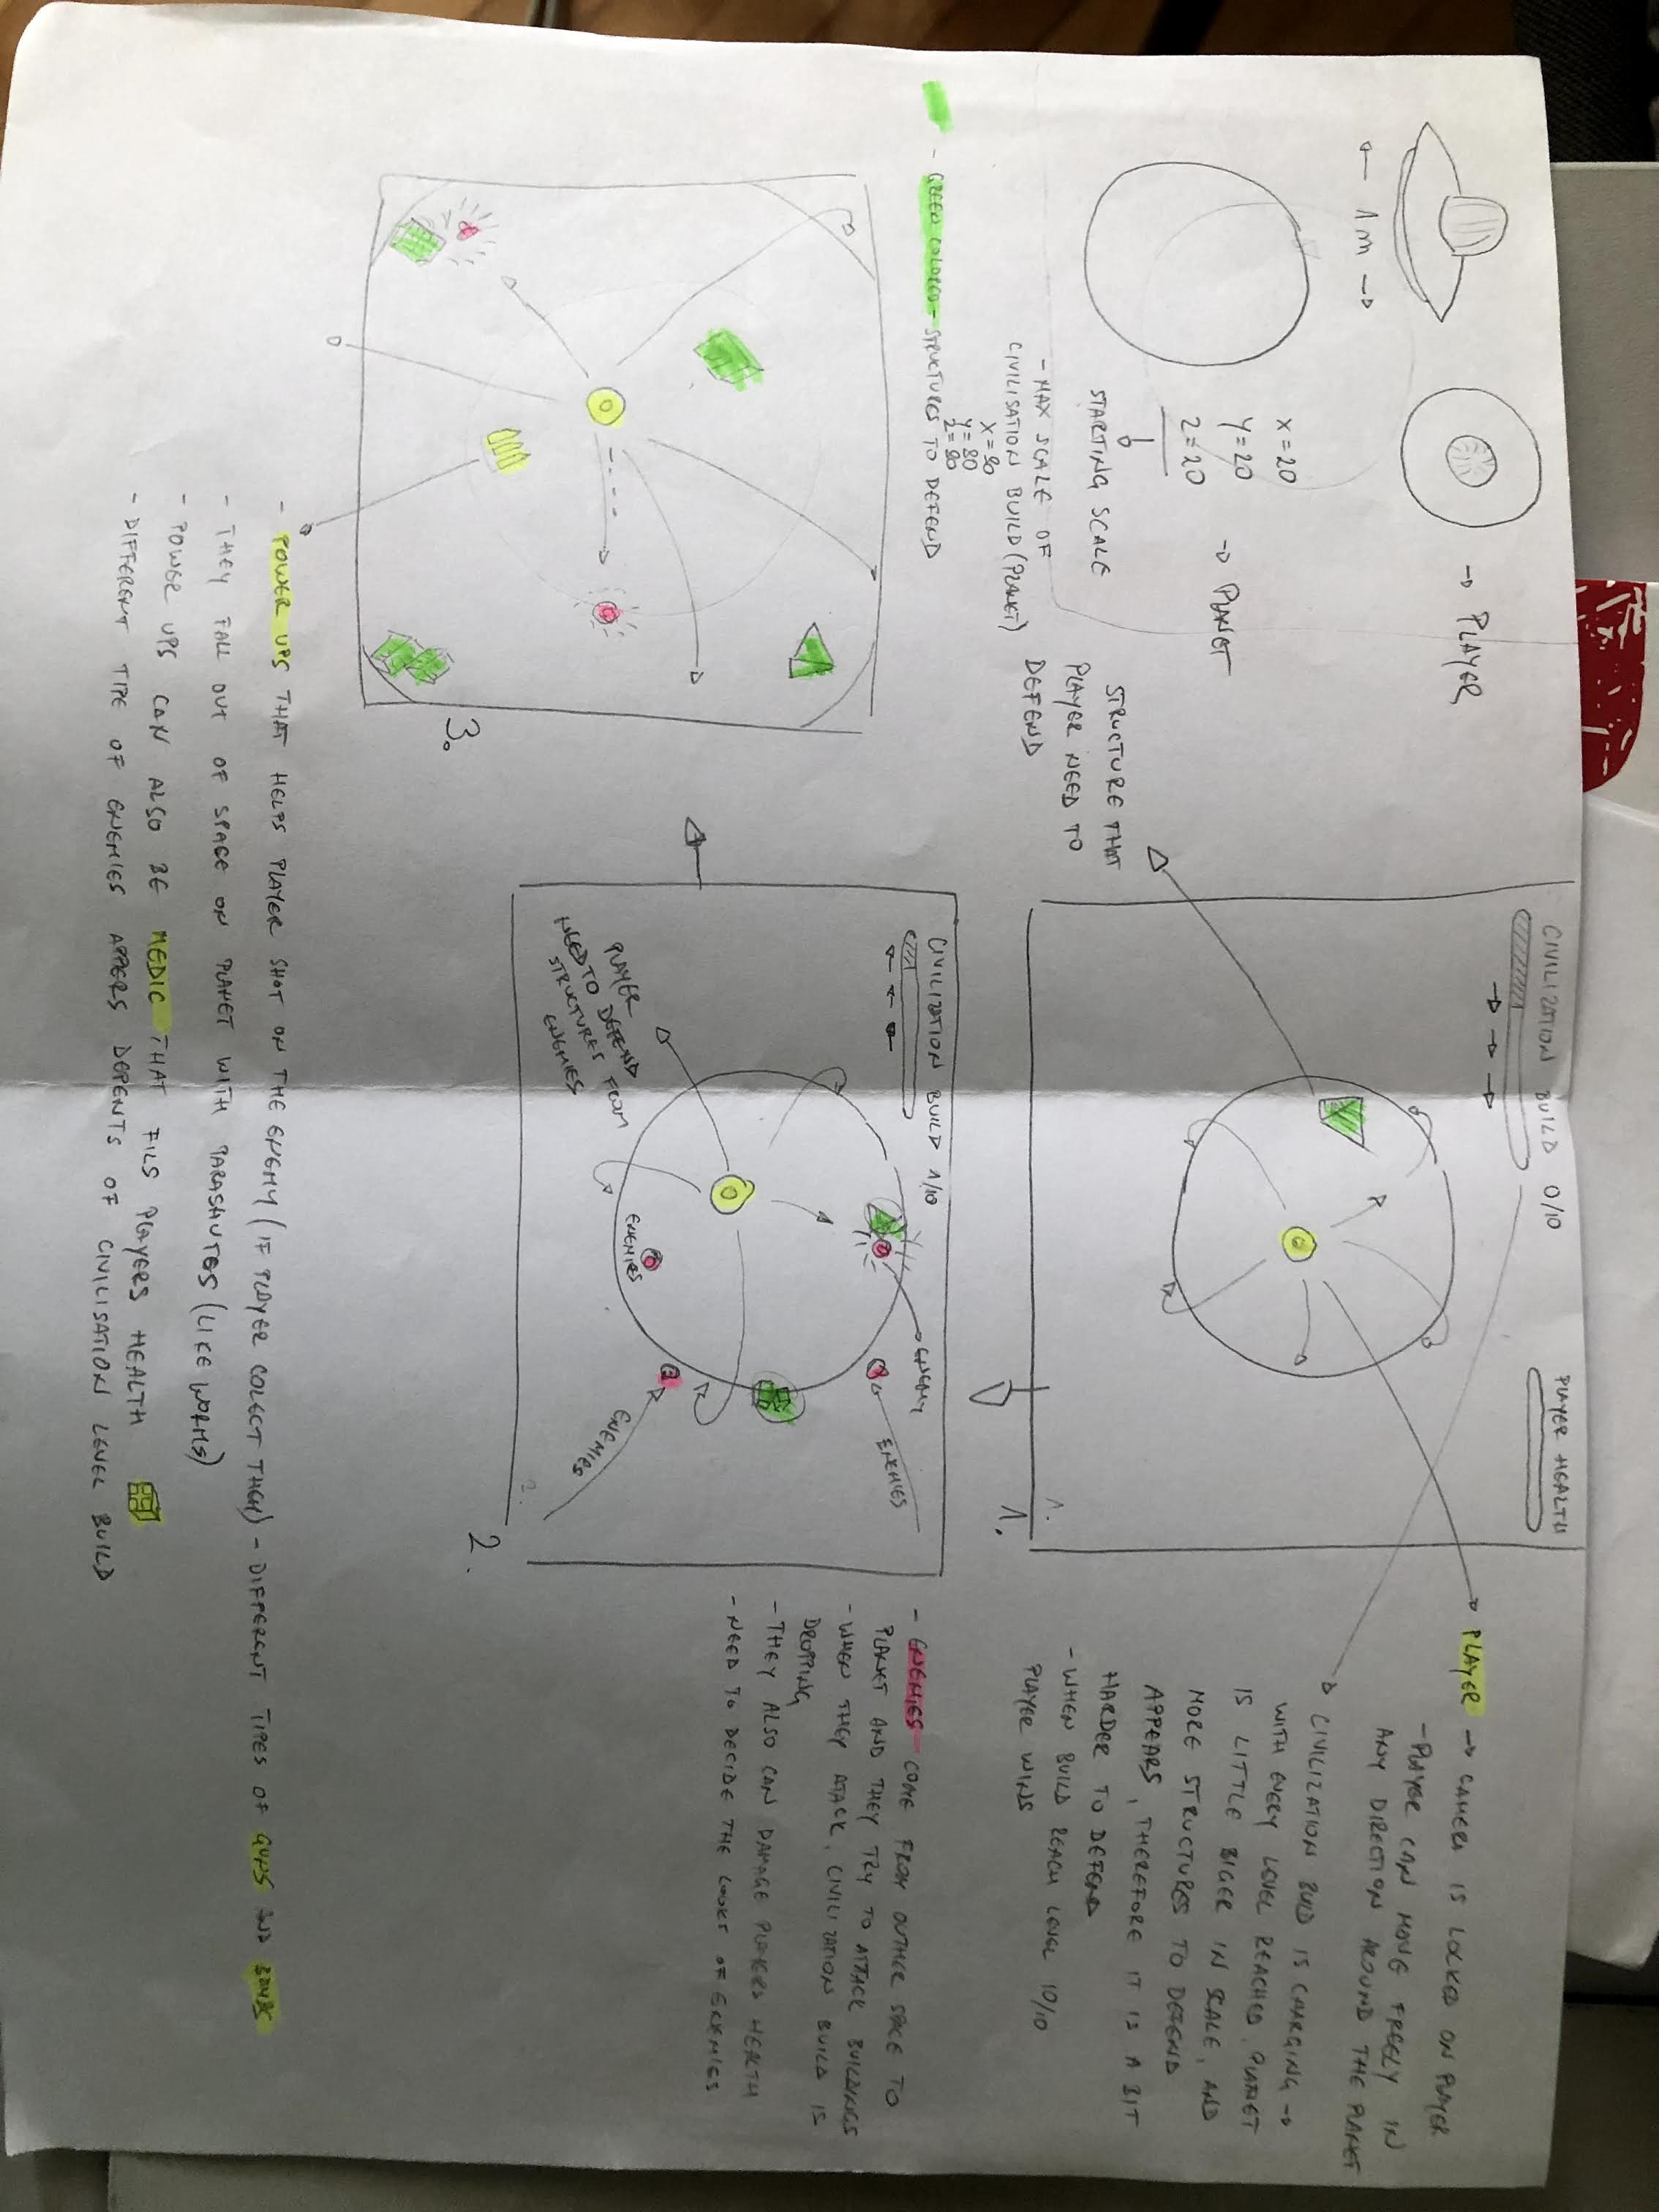 → PLAYER
← 1m →
X=20
Y=20
Z=20
→ PLANET
STARTING SCALE
- MAX SCALE OF
CIVILISATION BUILD (PLANET)
X=80
Y=80
Z=80
- GREEN COLORED - STRUCTURES TO DEFEND
CIVILIZATION BUILD 0/10
PLAYER HEALTH
STRUCTURE THAT
PLAYER NEED TO
DEFEND
1.
1.
PLAYER → CAMERA IS LOCKED ON PLAYER
- PLAYER CAN MOVE FREELY IN
ANY DIRECTION AROUND THE PLANET
CIVILIZATION BUILD IS CHARGING →
WITH EVERY LEVEL REACHED, PLANET
IS LITTLE BIGER IN SCALE, AND
MORE STRUCTURES TO DEFEND
APPEARS, THEREFORE IT IS A BIT
HARDER TO DEFEND
- WHEN BUILD REACH LEVEL 10/10
PLAYER WINS
CIVILIZATION BUILD 1/10
ENEMY
ENEMIES
ENEMIES
ENEMIES
PLAYER
NEED TO DEFEND
STRUCTURES FROM
ENEMIES
2.
2.
- ENEMIES COME FROM OUTHER SPACE TO
PLANET AND THEY TRY TO ATTACK BUILDINGS
- WHEN THEY ATACK, CIVILIZATION BUILD IS
DROPPING
- THEY ALSO CAN DAMAGE PLAYERS HEALTH
- NEED TO DECIDE THE LOOKS OF ENEMIES
3.
- POWER UPS THAT HELPS PLAYER SHOT ON THE ENEMY (IF PLAYER COLECT THEM) - DIFFERENT TIPES OF GUNS AND BOMBS
- THEY FALL OUT OF SPACE ON PLANET WITH PARASHUTES (LIKE WORMS)
- POWER UPS CAN ALSO BE MEDIC THAT FILS PLAYERS HEALTH
- DIFFERENT TIPE OF ENEMIES APPERS DEPENTS OF CIVILISATION LEVEL BUILD